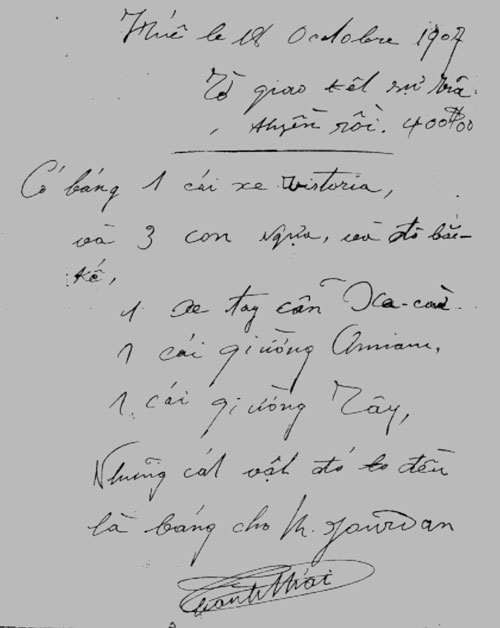 Huế le 18 Octobre 1907
Tờ giao kết sự trả
thyền rồi. 400$00
Có báng 1 cái xe Victoria,
và 3 con ngựa, và đồ bắc-
kế,
1 xe tay cẩn Xa-cừ
1 cái giường Annam,
1 cái giường Tây,
Những cát vật đó đều
là báng cho M. Jourdan
Thành Thái